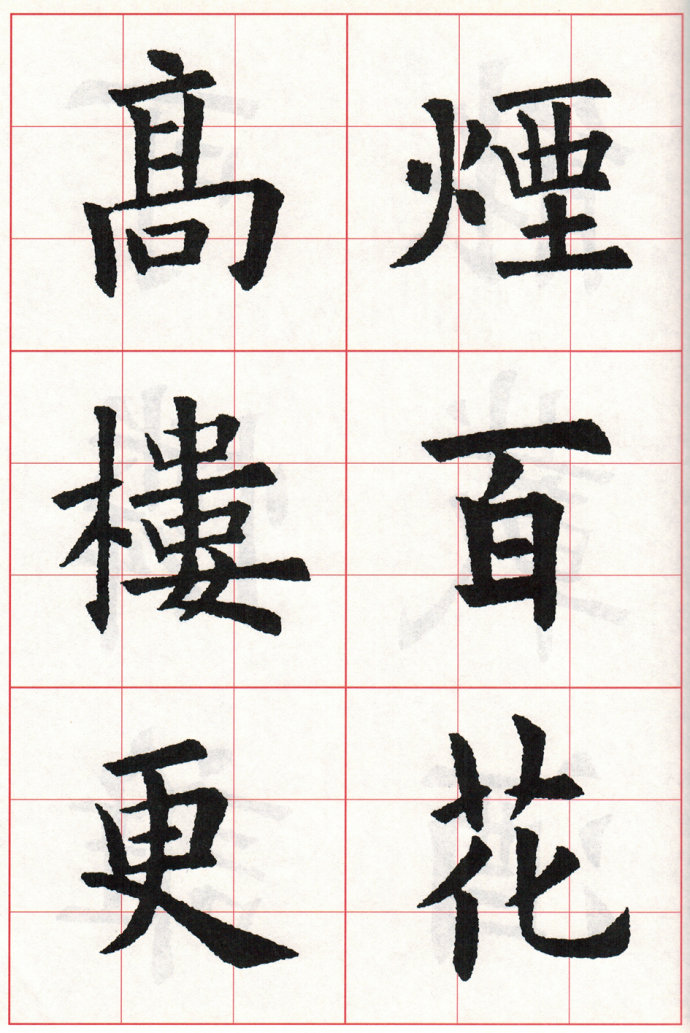 煙百花
髙樓更